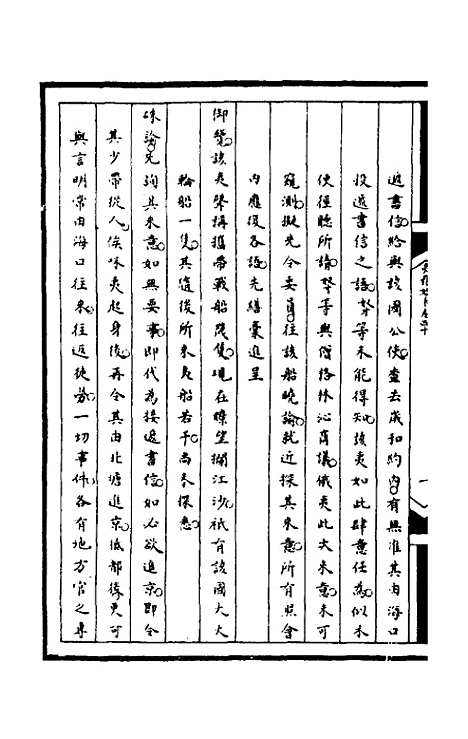 遞書信給與該國公使查去歲和約內有無准其由海口
投遞書信之語等未能得知該夷如此肆意任為似未
便徑聽所請等與僧格林沁商議俄夷此次來意未可
窺測擬先令委員往該船曉諭就近探其來意所有照會
內應復各語先繕稾進呈
御覽該夷聲稱攜帶戰船幾隻現在瞭望攔江沙祇有該國大火
輪船一隻其隨後所來夷船若干尚未探悉
硃諭先詢其來意如無要事即代為接遞書信如必欲進京即令
其少帶從人俟咪夷起身後再令其由北塘進京抵都後更可
與言明常由海口往來往返徒勞一切事件各有地方官之專